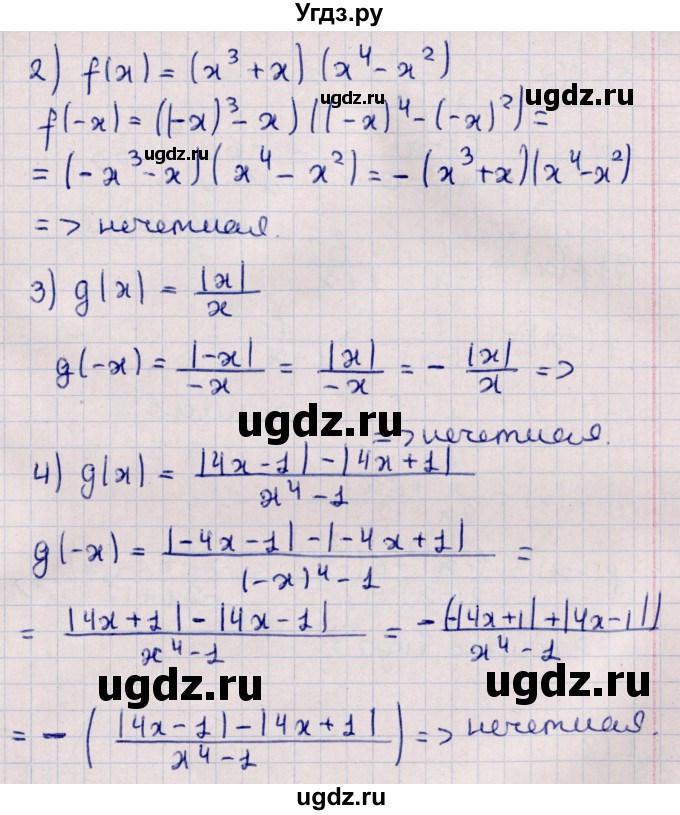 Угдз.ру
2) f(x) = (x³ + x) (x⁴ - x²)
ugdz.ru ugdz.ru
f(-x) = ((-x)³ - x) ((-x)⁴ - (-x)²) =
ugdz.ru
= (-x³ - x)(x⁴ - x²) = - (x³ + x)(x⁴ - x²)
=> нечетная.
3) g(x) = |x| / x
g(-x) = |-x| / -x = |x| / -x = - |x| / x =>
ugdz.ru
=> нечетная.
4) g(x) = |4x - 1| - |4x + 1| / x⁴ - 1
g(-x) = |-4x - 1| - |-4x + 1| / (-x)⁴ - 1 =
= |4x + 1| - |4x - 1| / x⁴ - 1 = -(-|4x + 1| + |4x - 1|) / x⁴ - 1
ugdz.ru ugdz.ru
= - ( |4x - 1| - |4x + 1| / x⁴ - 1 ) => нечетная.
ugdz.ru
ugdz.ru